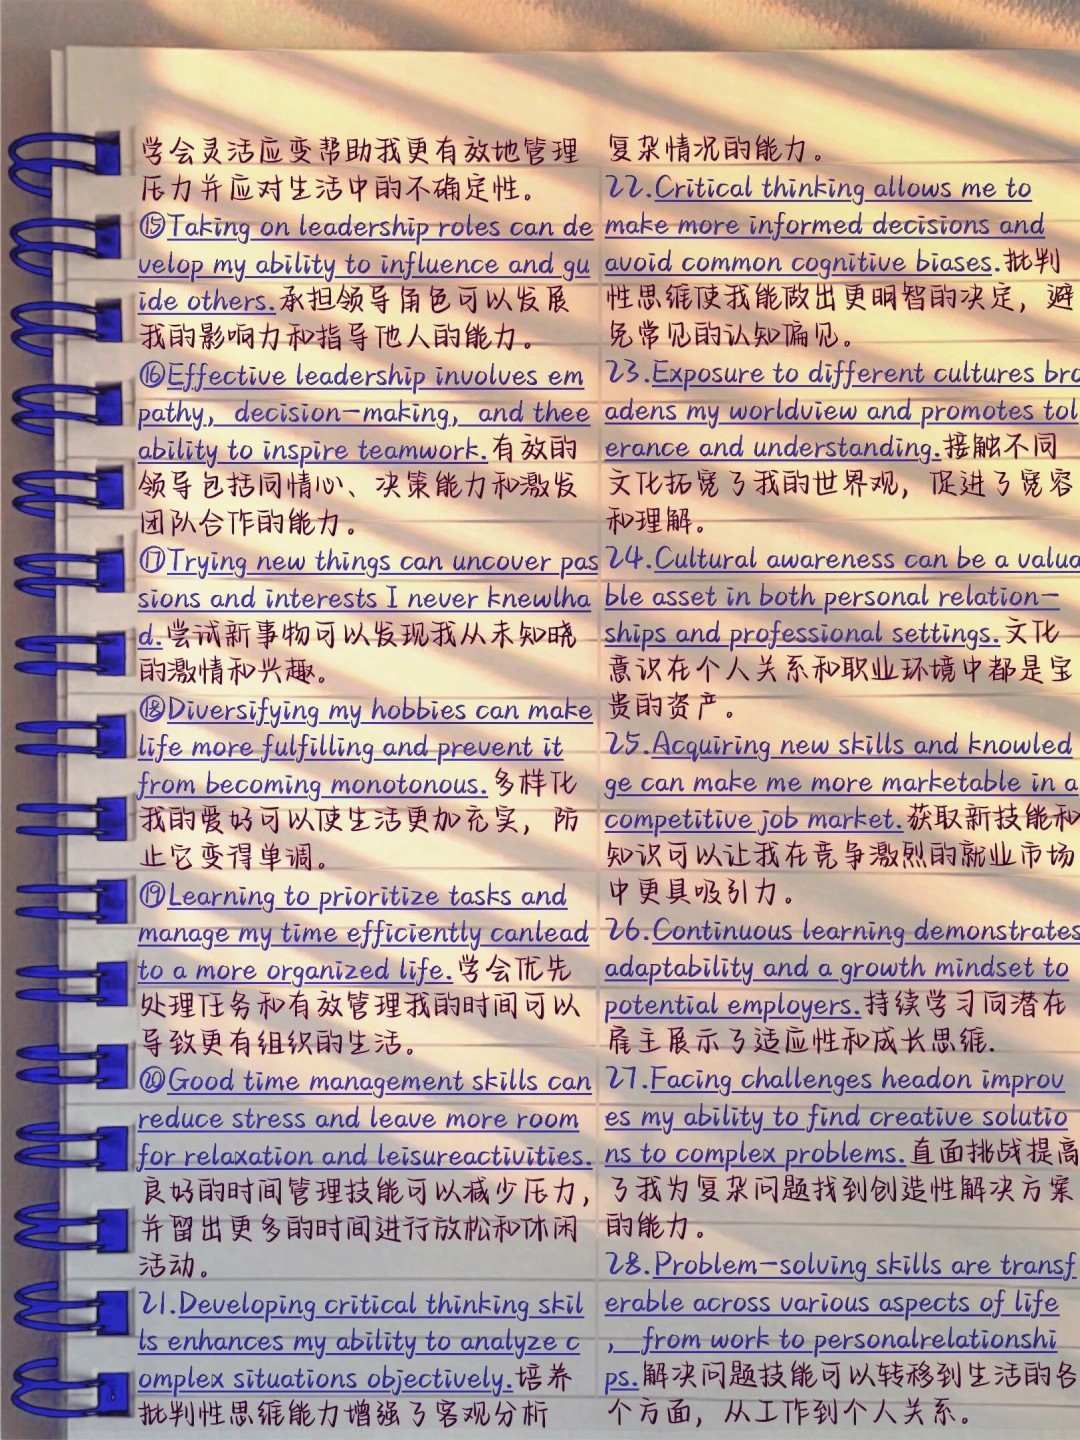 学会灵活应变帮助我更有效地管理
压力并应对生活中的不确定性。
⑮Taking on leadership roles can de
velop my ability to influence and gu
ide others.承担领导角色可以发展
我的影响力和指导他人的能力。
⑯Effective leadership involves em
pathy, decision-making, and thee
ability to inspire teamwork.有效的
领导包括同情心、决策能力和激发
团队合作的能力。
⑰Trying new things can uncover pas
sions and interests I never knewIha
d.尝试新事物可以发现我从未知晓
的激情和兴趣。
⑱Diversifying my hobbies can make
life more fulfilling and prevent it
from becoming monotonous.多样化
我的爱好可以使生活更加充实，防
止它变得单调。
⑲Learning to prioritize tasks and
manage my time efficiently canlead
to a more organized life.学会优先
处理任务和有效管理我的时间可以
导致更有组织的生活。
⑳Good time management skills can
reduce stress and leave more room
for relaxation and leisureactivities.
良好的时间管理技能可以减少压力，
并留出更多的时间进行放松和休闲
活动。
21.Developing critical thinking skil
ls enhances my ability to analyze c
omplex situations objectively.培养
批判性思维能力增强了客观分析
复杂情况的能力。
22.Critical thinking allows me to
make more informed decisions and
avoid common cognitive biases.批判
性思维使我能做出更明智的决定，避
免常见的认知偏见。
23.Exposure to different cultures bro
adens my worldview and promotes tol
erance and understanding.接触不同
文化拓宽了我的世界观，促进了宽容
和理解。
24.Cultural awareness can be a valua
ble asset in both personal relation-
ships and professional settings.文化
意识在个人关系和职业环境中都是宝
贵的资产。
25.Acquiring new skills and knowled
ge can make me more marketable in a
competitive job market.获取新技能和
知识可以让我在竞争激烈的就业市场
中更具吸引力。
26.Continuous learning demonstrates
adaptability and a growth mindset to
potential employers.持续学习向潜在
雇主展示了适应性和成长思维.
27.Facing challenges headon improv
es my ability to find creative solutio
ns to complex problems.直面挑战提高
了我为复杂问题找到创造性解决方案
的能力。
28.Problem-solving skills are transf
erable across various aspects of life
, from work to personalrelationshi
ps.解决问题技能可以转移到生活的各
个方面，从工作到个人关系。